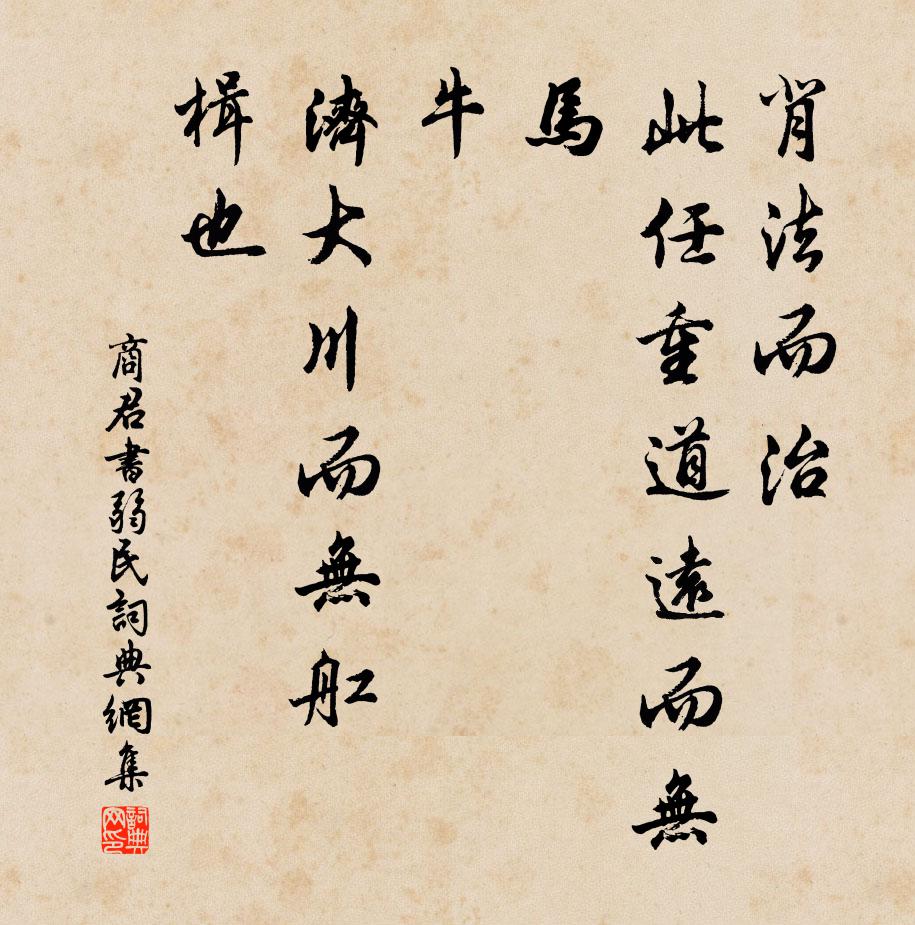 背法而治
此任重道遠而無
馬
牛
濟大川而無舡
楫也
商君書弱民詞典網集
詞典
网印